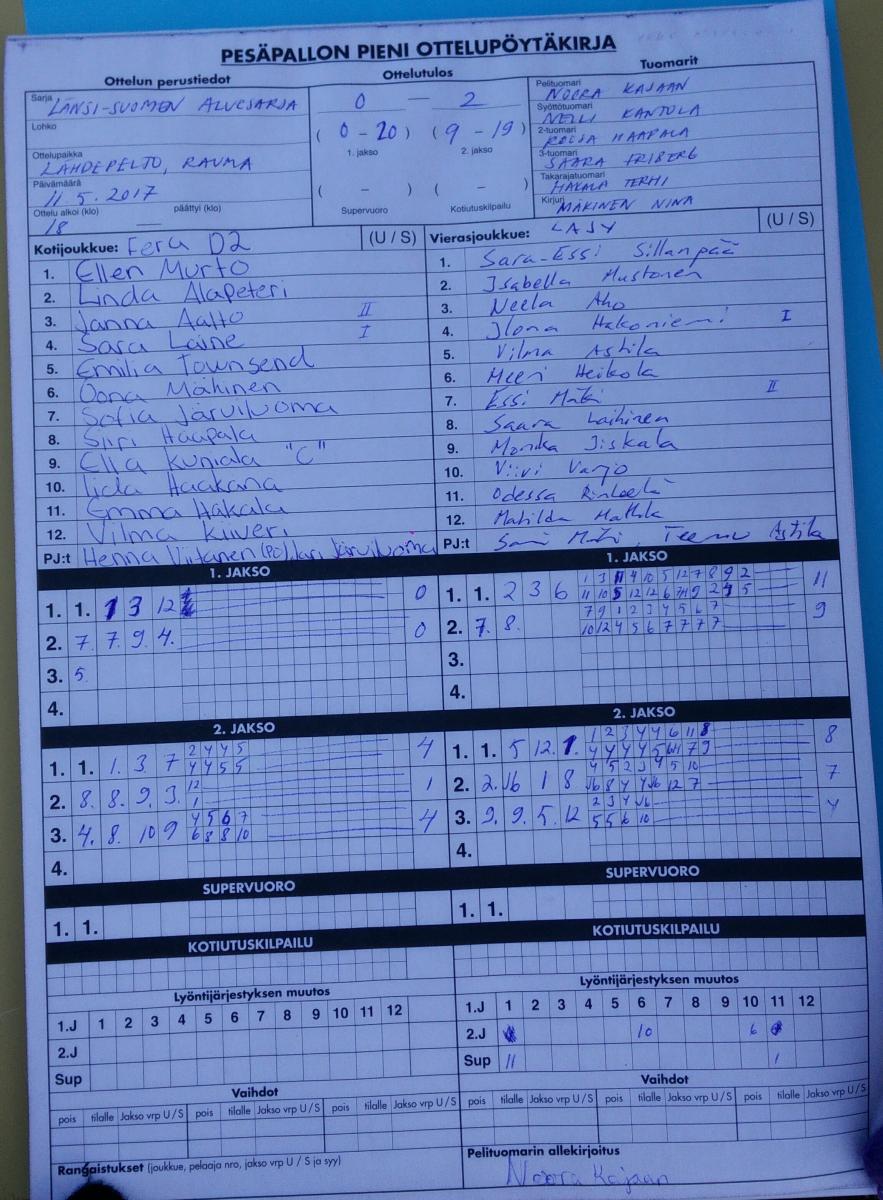 PESÄPALLON PIENI OTTELUPÖYTÄKIRJA
Ottelun perustiedot
Sarja LÄNSI-SUOMEN ALUESARJA
Lohko
Ottelupaikka LÄHDEPELTO, RAUMA
Päivämäärä 11.5.2017
Ottelu alkoi (klo) päättyi (klo)
18 —
Ottelutulos
0 — 2
(0 - 20) (9 - 19)
1. jakso 2. jakso
( - ) ( - )
Supervuoro Kotiutuskilpailu
Tuomarit
Pelituomari NOORA KAJAAN
Syöttötuomari NELLI KANTOLA
2-tuomari ROOSA HAAPALA
3-tuomari SAARA FRIBERG
Takarajatuomari HAKALA TERHI
Kirjuri MÄKINEN NINA
Kotijoukkue: Fera D2 (U / S)
1. Ellen Murto
2. Linda Alapeteri
3. Janna Aalto II
4. Sara Laine I
5. Emilia Townsend
6. Oona Mäkinen
7. Sofia Järviluoma
8. Siiri Haapala
9. Ella Kuniala "C"
10. Iida Haakana
11. Emma Hakala
12. Vilma Kiiveri
PJ:t Henna Viitanen (PO) Jari Järviluoma
Vierasjoukkue: LAJY (U / S)
1. Sara-Essi Sillanpää
2. Isabella Mustonen
3. Neela Aho
4. Ilona Hakoniemi I
5. Vilma Astila
6. Meeri Heikola
7. Essi Mäki II
8. Saara Laihinen
9. Monika Iiskala
10. Viivi Varjo
11. Odessa
12. Matilda
PJ:t Sami Mäki, Teemu Astila
1. JAKSO
1. 1. 1 3 12 0
2. 7. 7 9 4. 0
3. 5.
4.
1. JAKSO
1 3 11 4 10 5 12 7 8 9 2
1. 1. 2 3 6 11
7 9 1 2 3 4 5 6 7
2. 7. 8. 10 12 4 5 6 7 7 7 7 9
3.
4.
2. JAKSO
2 4 4 5
1. 1. 1. 3. 7 4 4 5 5 4
12
2. 8. 8. 9. 3. 1 1
4 5 6 7
3. 4. 8. 10 9 6 8 8 10 4
4.
2. JAKSO
1 2 3 4 4 6 11 8
1. 1. 5 12. 1. 4 4 4 4 5 7 9 8
4 5 2 3 4 5 10
2. 2. 1 8 8 4 4 12 7 7
2 3 4
3. 9. 9. 5. 12 5 5 6 10 4
4.
SUPERVUORO
1. 1.
SUPERVUORO
1. 1.
KOTIUTUSKILPAILU
KOTIUTUSKILPAILU
Lyöntijärjestyksen muutos
1.J 1 2 3 4 5 6 7 8 9 10 11 12
2.J
Sup
Lyöntijärjestyksen muutos
1.J 1 2 3 4 5 6 7 8 9 10 11 12
2.J 10 6
Sup 11 1
Vaihdot
pois tilalle Jakso vrp U / S pois tilalle Jakso vrp U / S pois tilalle Jakso vrp U / S
Vaihdot
pois tilalle Jakso vrp U / S pois tilalle Jakso vrp U / S pois tilalle Jakso vrp U / S
Rangaistukset (joukkue, pelaaja nro, jakso vrp U / S ja syy)
Pelituomarin allekirjoitus
Noora Kajaan